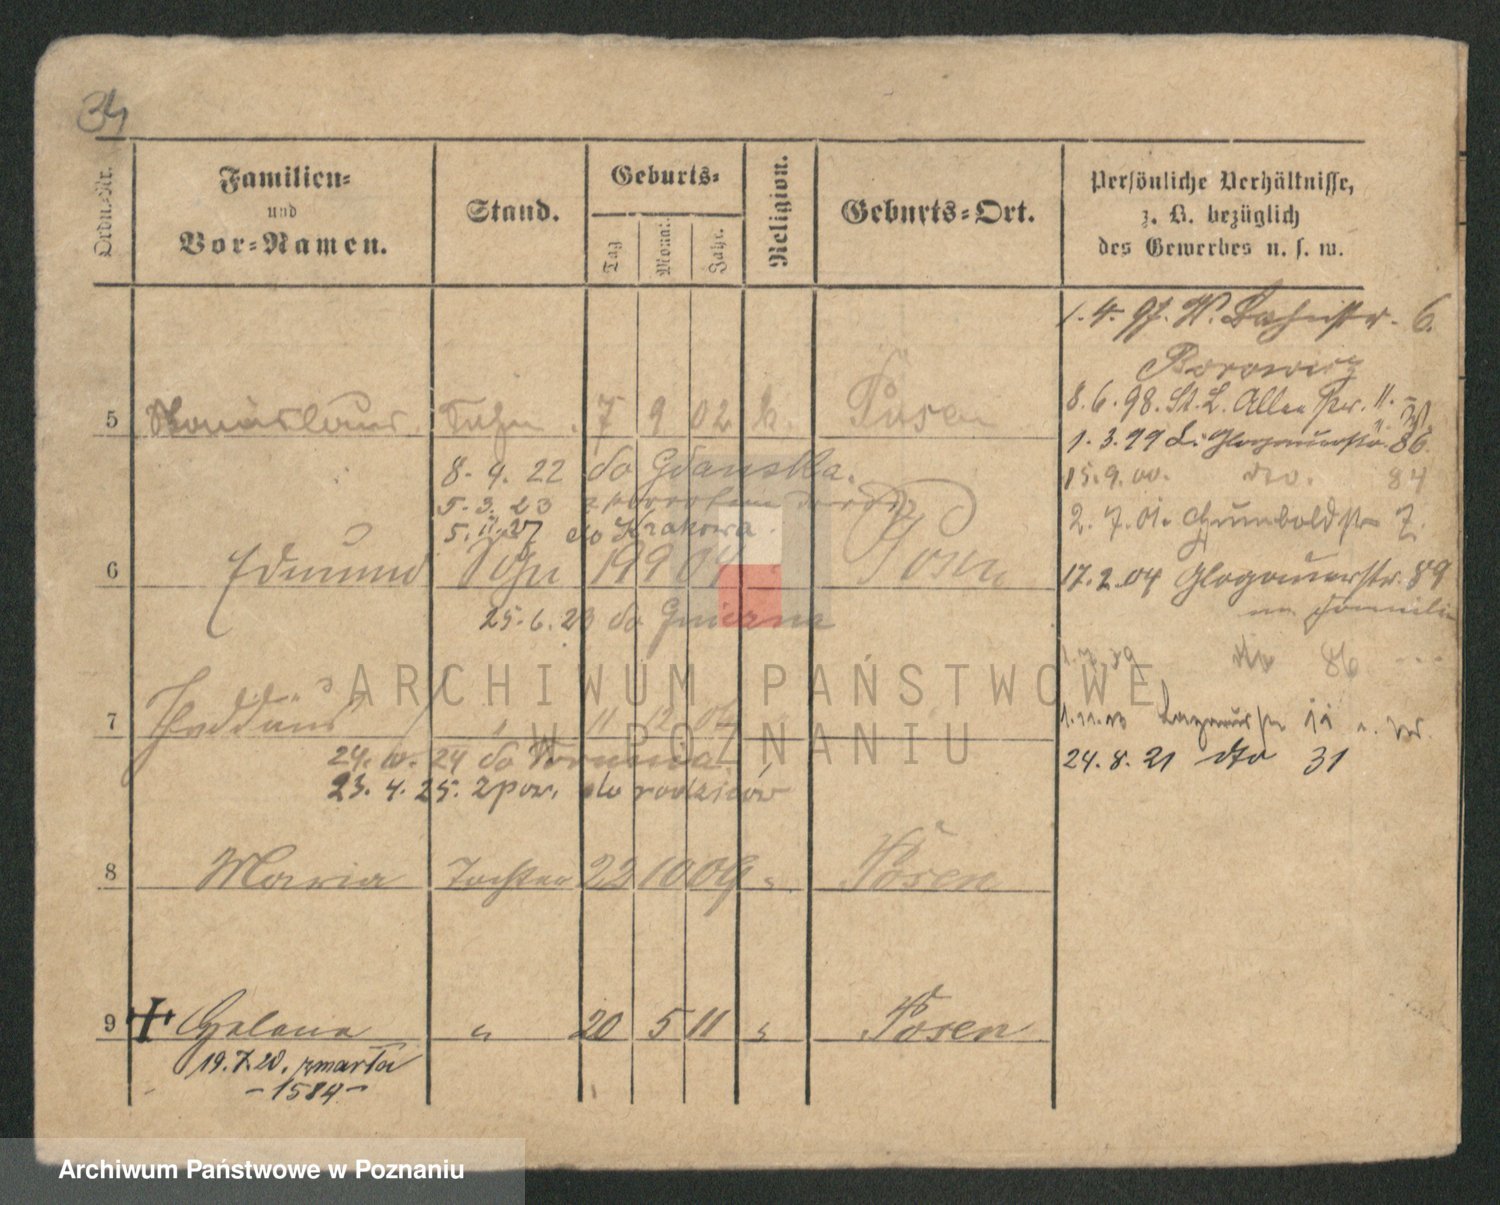 34
Ordn.-Nr.
Familien-
und
Vor-Namen.
Stand.
Geburts-
Tag
Monat
Jahr.
Religion.
Geburts-Ort.
Persönliche Verhältnisse,
z. B. bezüglich
des Gewerbes u. s. w.
1. 4. 97. W. Bahnstr. 6.
Borowicz
8. 6. 98. St. L. Allee 11.
5 Sohn 7 9 02 k. Posen
1. 3. 99 Glogauerstr. 86.
8. 4. 22 do Gdańska.
15. 9. 00. dto. 84
5. 3. 23 z powrotem
2. 7. 01. Grunboldstr 7.
5. 11. 27 do Krakowa.
6 Edmund Sohn 19 9 04 Posen
17. 2. 04 Glogauerstr. 89
25. 6. 23 do Gniezna
dto 86
7 Thaddäus " 11 12 06
1. 11. 10
24. 10. 24 do Torunia
24. 8. 21 dto 31
23. 4. 25. z pow. do rodziców
8 Maria Tochter 22 10 09 Posen
9 Helena " 20 5 11 Posen
19. 7. 20. zmarła
- 1584 -
ARCHIWUM PAŃSTWOWE
W POZNANIU
Archiwum Państwowe w Poznaniu